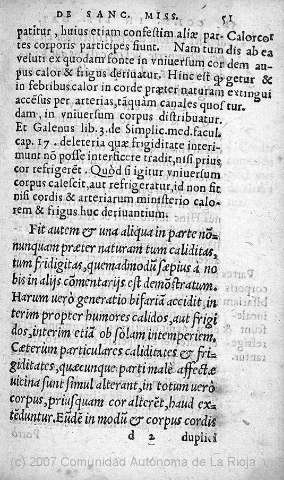 DE SANC. MISS. 51
patitur, huius etiam confestim aliæ par- Calor cor
tes corporis participes fiunt. Nam tum dis ab ea
veluti ex quodam fonte in vniuersum cor dem au-
pus calor & frigus deriuatur. Hinc est q̃ getur &
in febribus calor in corde præter naturam extingui
accēsus per arterias, tāquàm canales quos tur.
dam, in vniuersum corpus distribuatur.
Et Galenus lib. 3. de Simplic. med. facul.
cap. 17. deleteria quæ frigiditate interi-
munt nō posse interficere tradit, nisi prius
cor refrigerēt. Quòd si igitur vniuersum
corpus calescit, aut refrigeratur, id non fit
nisi cordis & arteriarum ministerio calo-
rem & frigus huc deriuantium.
Fit autem & vna aliqua in parte nō-
nunquam præter naturam tum caliditas,
tum frigiditas, quemadmodū sæpius à no
bis in alijs cōmentarijs est demōstratum.
Harum uerò generatio bifariā accidit, in
terim propter humores calidos, aut frigi
dos, interim etiā ob solam intemperiem.
Cæterum particulares caliditates & fri-
giditates, quæcunque parti malè affectæ
uicina sunt simul alterant, in totum uerò
corpus, priusquam cor alterēt, haud ex-
tēduntur. Eūdē in modū & corpus cordis
d 2 duplici
(c) 2007 Comunidad Autónoma de La Rioja